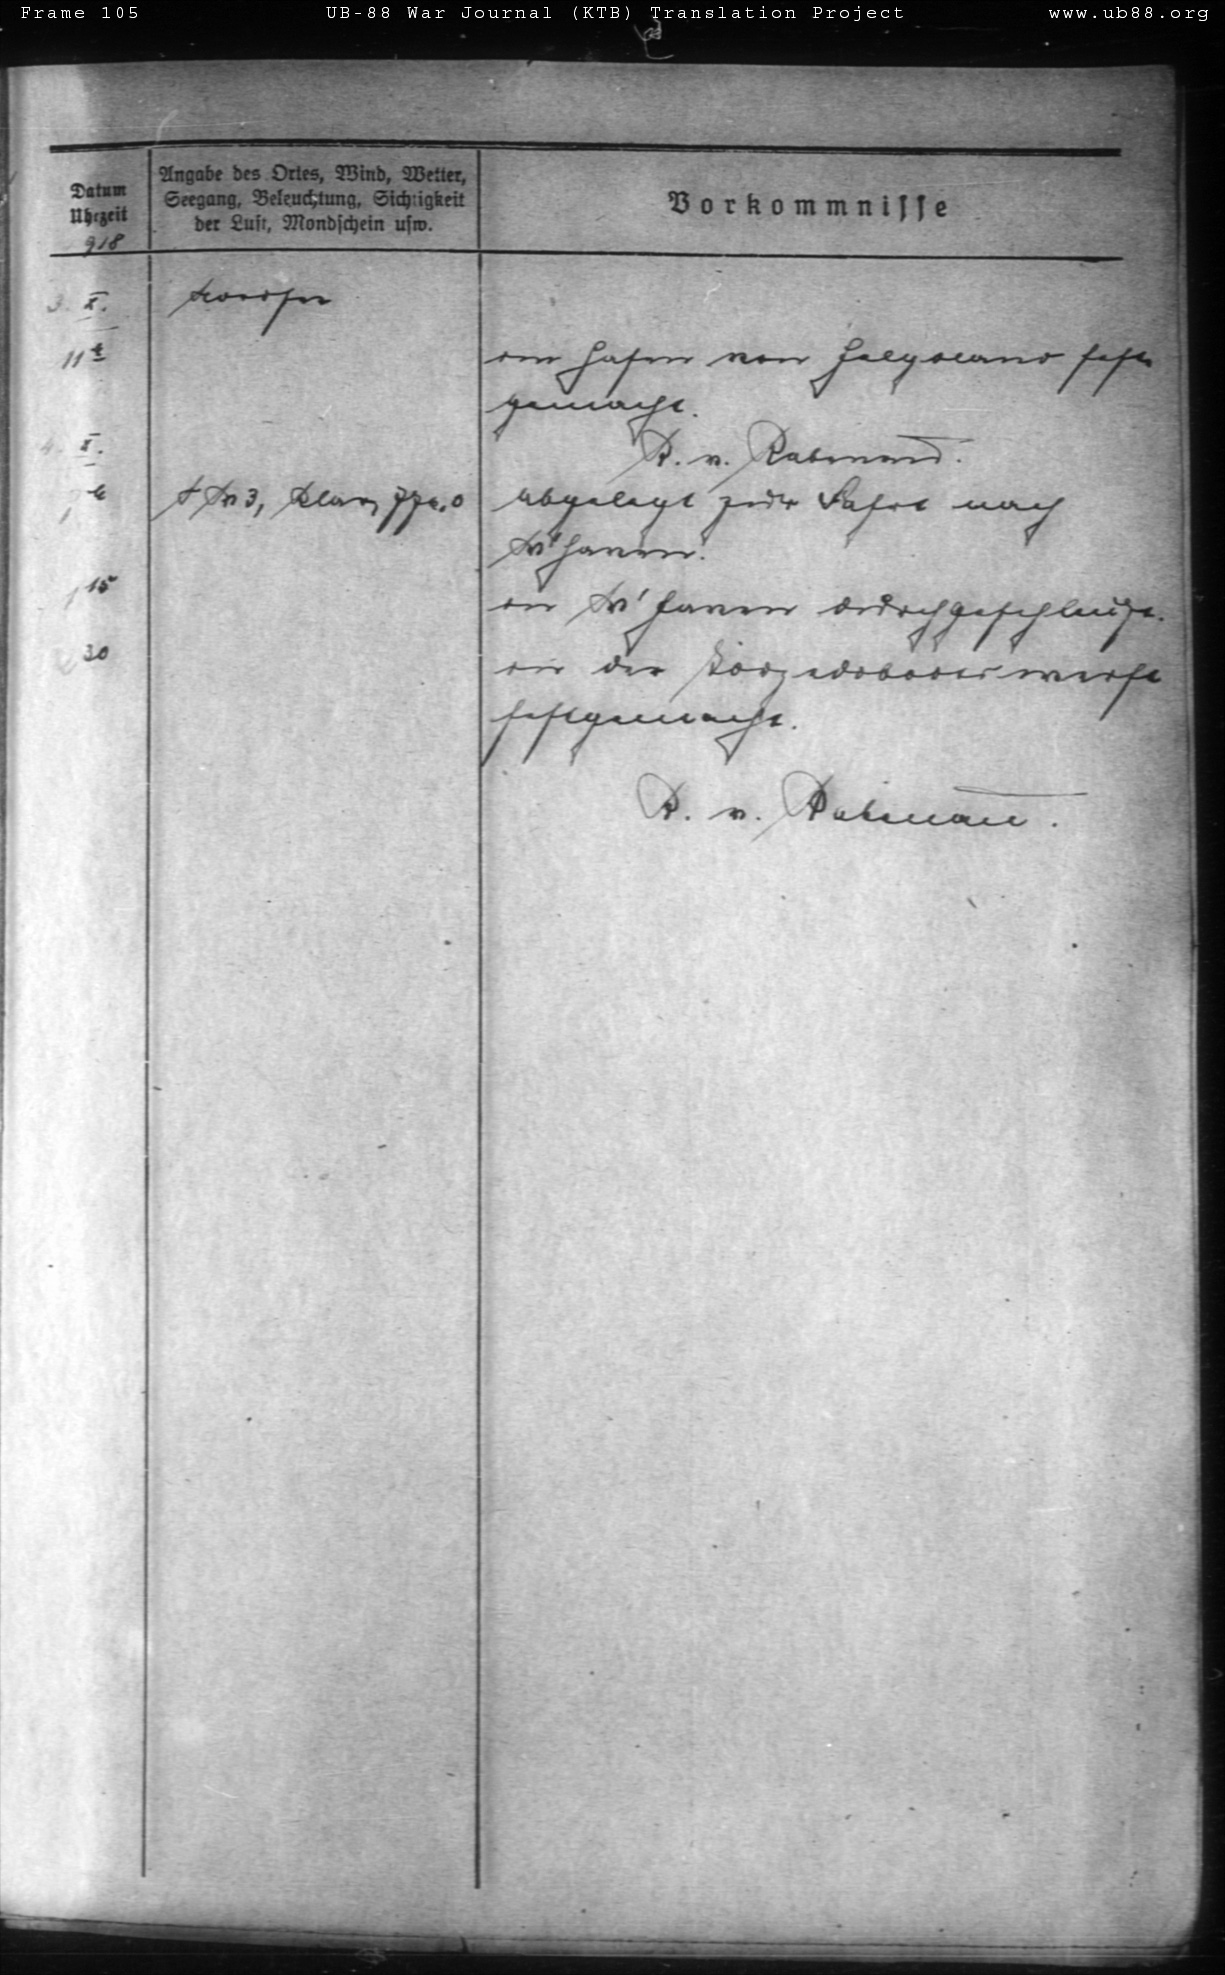 Frame 105 UB-88 War Journal (KTB) Translation Project www.ub88.org
Datum
Uhrzeit
918
Angabe des Ortes, Wind, Wetter,
Seegang, Beleuchtung, Sichtigkeit
der Luft, Mondschein usw.
Vorkommnisse
3. X. Nordsee
11 im Hafen von Helgoland fest
gemacht.
R. v. Rabenau.
4. X.
W 3, klar, abgelegt zur Fahrt nach
W'haven.
15 in W'haven durchgeschleust.
30 in der Torpedobootswerft
festgemacht.
R. v. Rabenau.